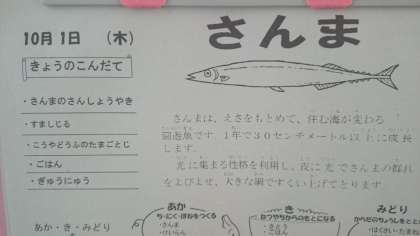 さんま
10月1日　(木)
きょうのこんだて
・さんまのさんしょうやき
・すましじる
・こうやどうふのたまごとじ
・ごはん
・ぎゅうにゅう
さんまは、えさをもとめて、住む海が変わる
回遊魚です。1年で30センチメートル以上に成長
します。
光に集まる性格を利用し、夜に光でさんまの群れ
をよびよせ、大きな網ですくい上げてとります。
あか・き・みどり
あか
ち・にく・ほねをつくる
・さんま
き
ねつやちからのもとになる
・さとう
・ごはん
みどり
からだのちょうしをととの